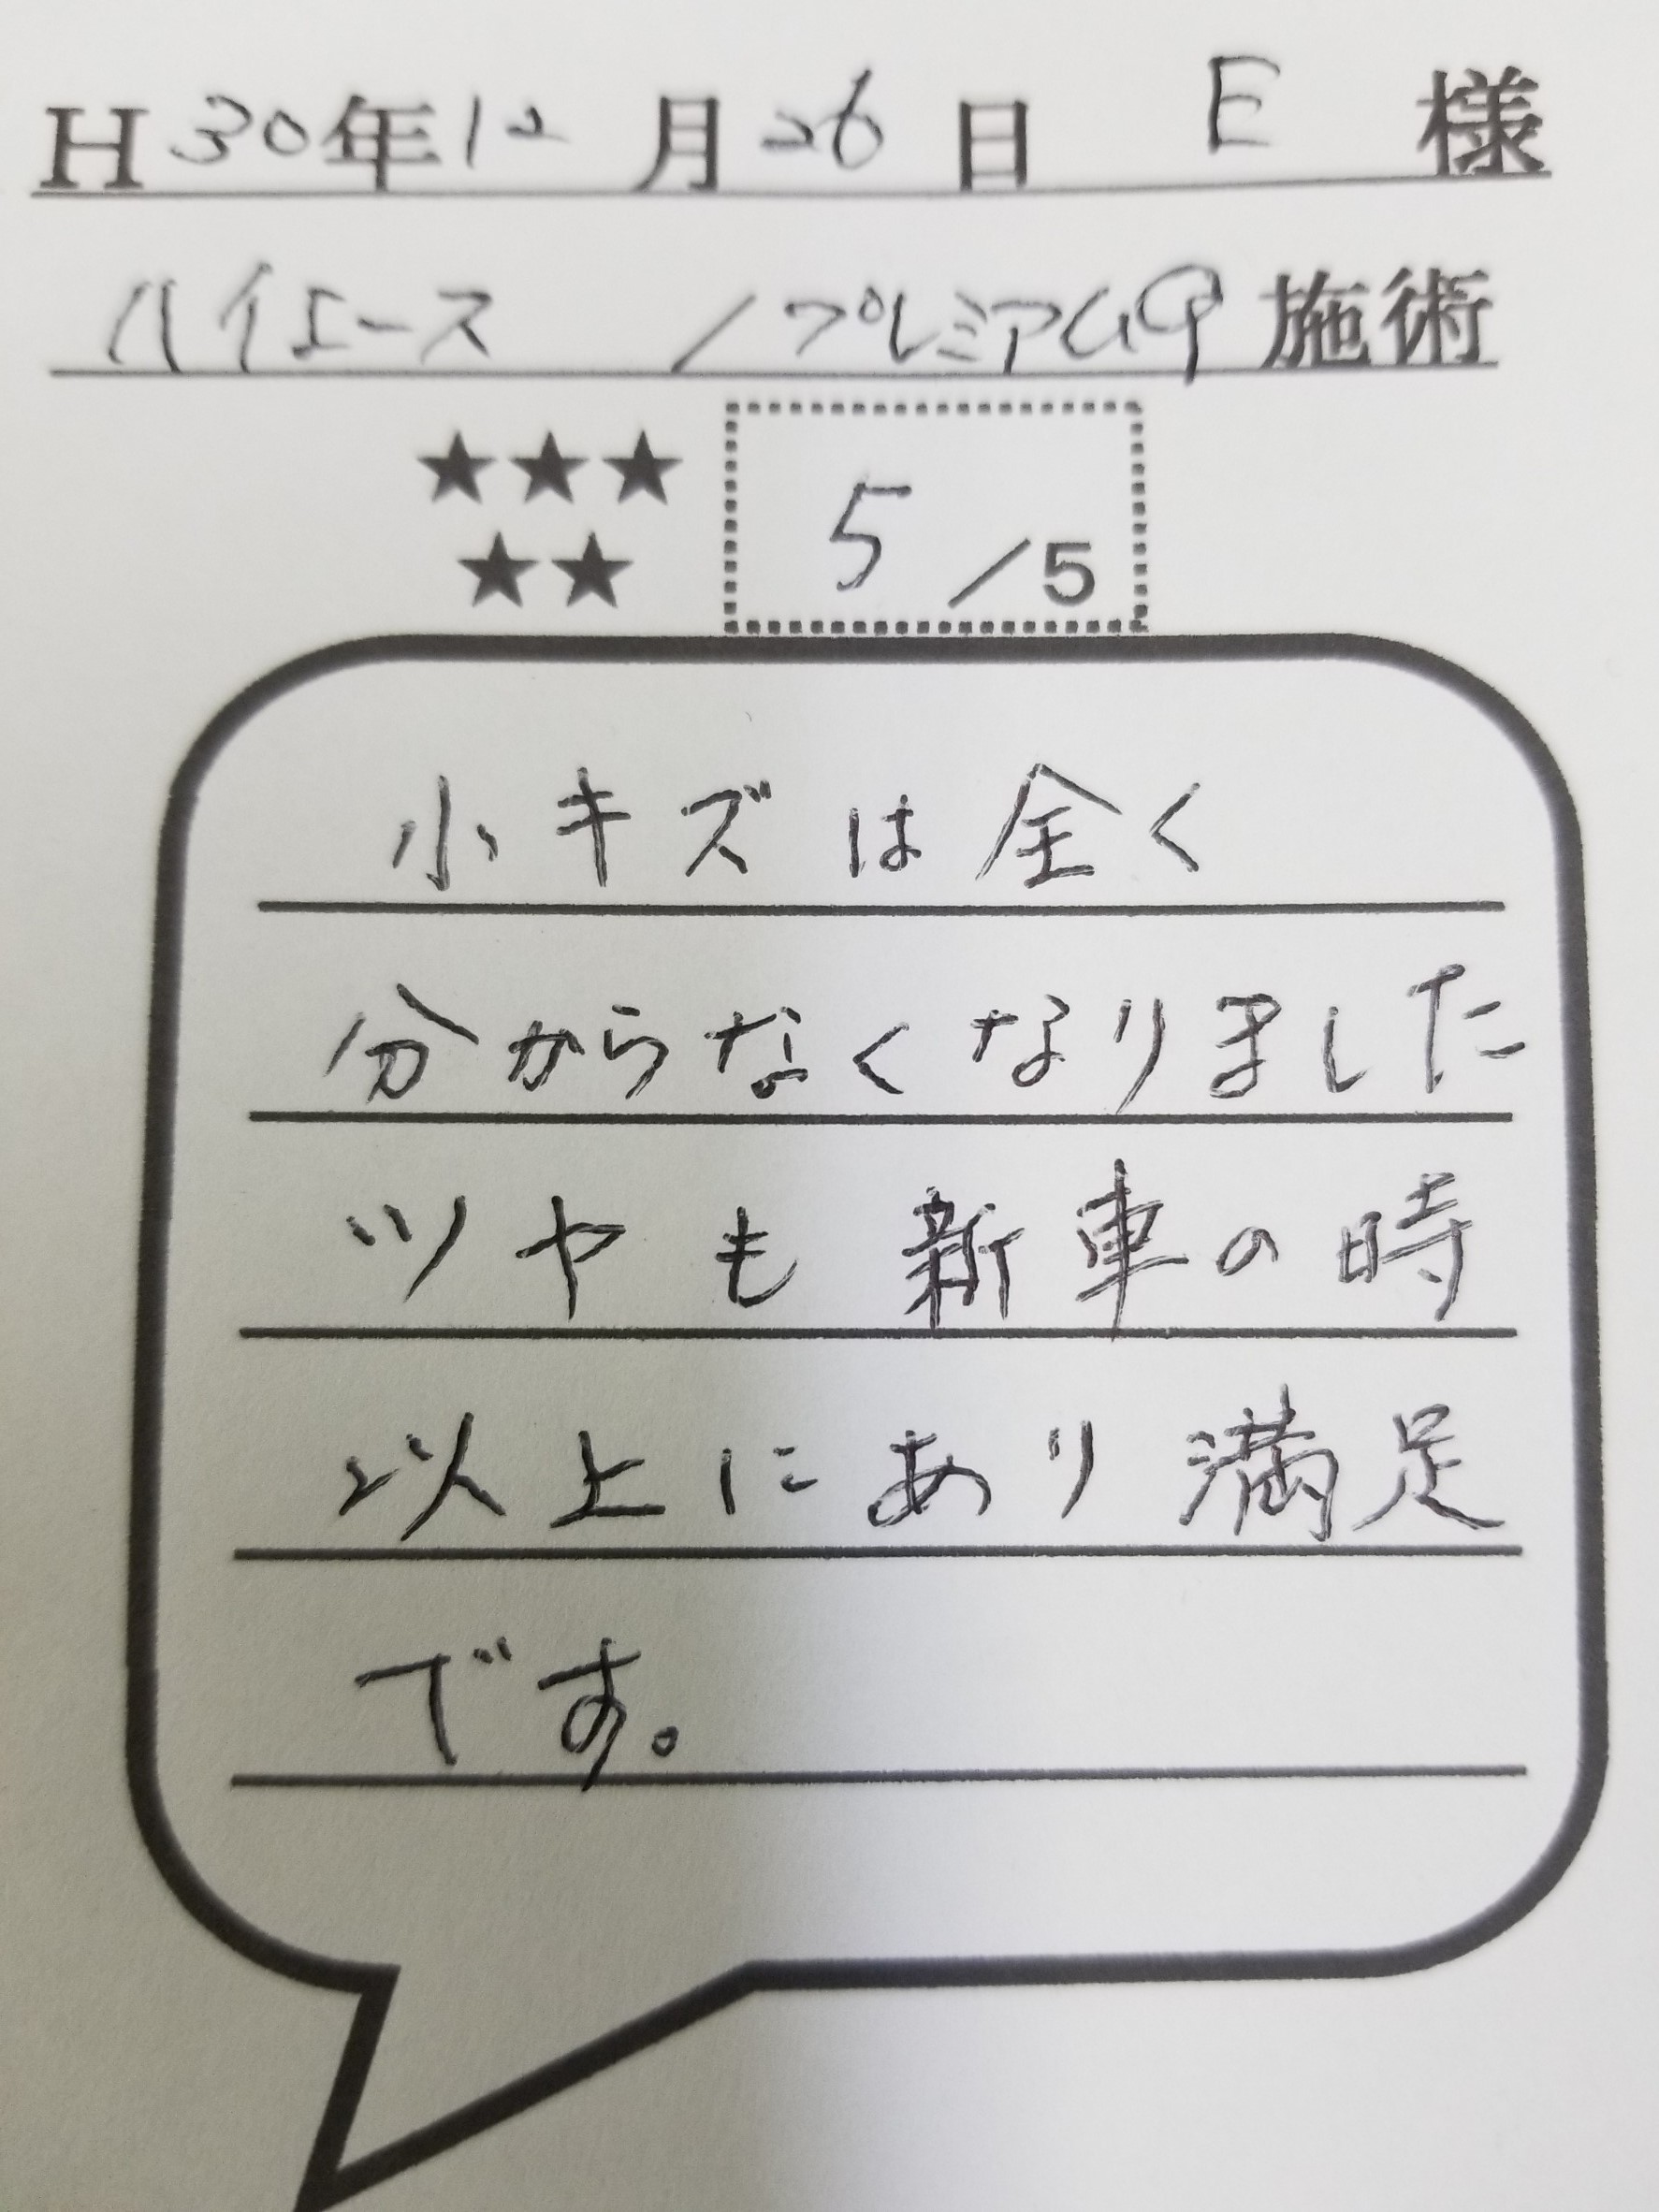 H30年12月26日 E 様
ハイエース /プレミアム9 施術
★★★
★★
5/5
小キズは全く
分からなくなりました
ツヤも新車の時
以上にあり満足
です。